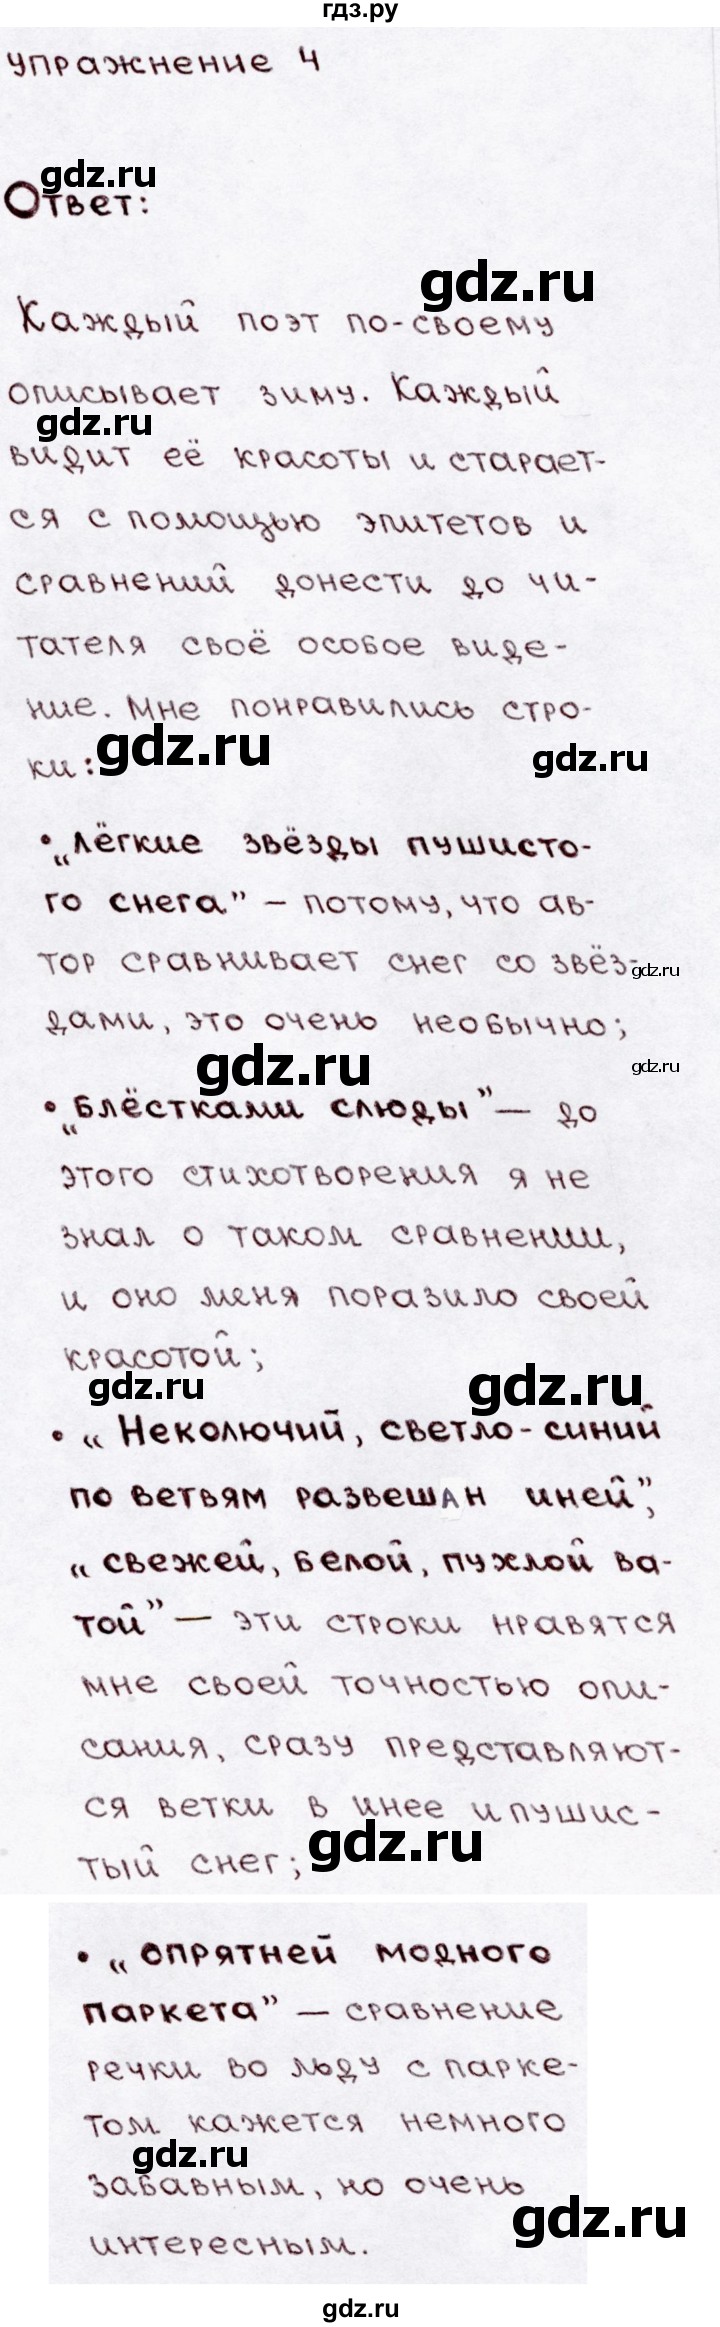 гдз.ру
упражнение 4
gdz.ru
Ответ:
gdz.ru
Каждый поэт по-своему
описывает зиму. Каждый
gdz.ru
видит её красоты и старает-
ся с помощью эпитетов и
сравнений донести до чи-
тателя своё особое виде-
ние. Мне понравились стро-
gdz.ru
ки:
gdz.ru
• „Лёгкие звёзды пушисто-
го снега” – потому, что ав-
тор сравнивает снег со звёз-
gdz.ru
дами, это очень необычно;
gdz.ru
gdz.ru
• „Блёстками слюды” — до
этого стихотворения я не
знал о таком сравнении,
и оно меня поразило своей
красотой;
gdz.ru
gdz.ru
• „Неколючий, светло-синий
по ветвям развешан иней”,
„свежей, белой, пухлой ва-
той” — эти строки нравятся
мне своей точностью опи-
сания, сразу представляют-
ся ветки в инее и пушис-
gdz.ru
тый снег;
• „опрятней модного
паркета” — сравнение
речки во льду с парке-
том кажется немного
gdz.ru
забавным, но очень
gdz.ru
интересным.
gdz.ru